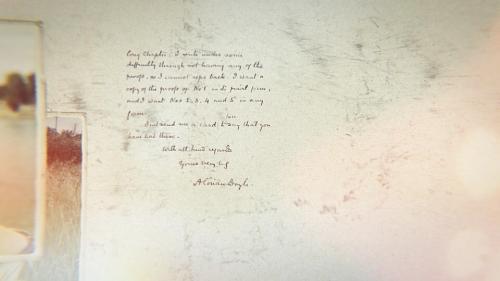 long chapter. I write under some
difficulty through not having any of the
proofs, so I cannot refer back. I want a
copy of the proofs of No 1 in its print form,
and I want Nos 2, 3, 4 and 5 in any
form.
Just send me a card to say that you
have had these.
With all kind regards
Yours very truly
A Conan Doyle.